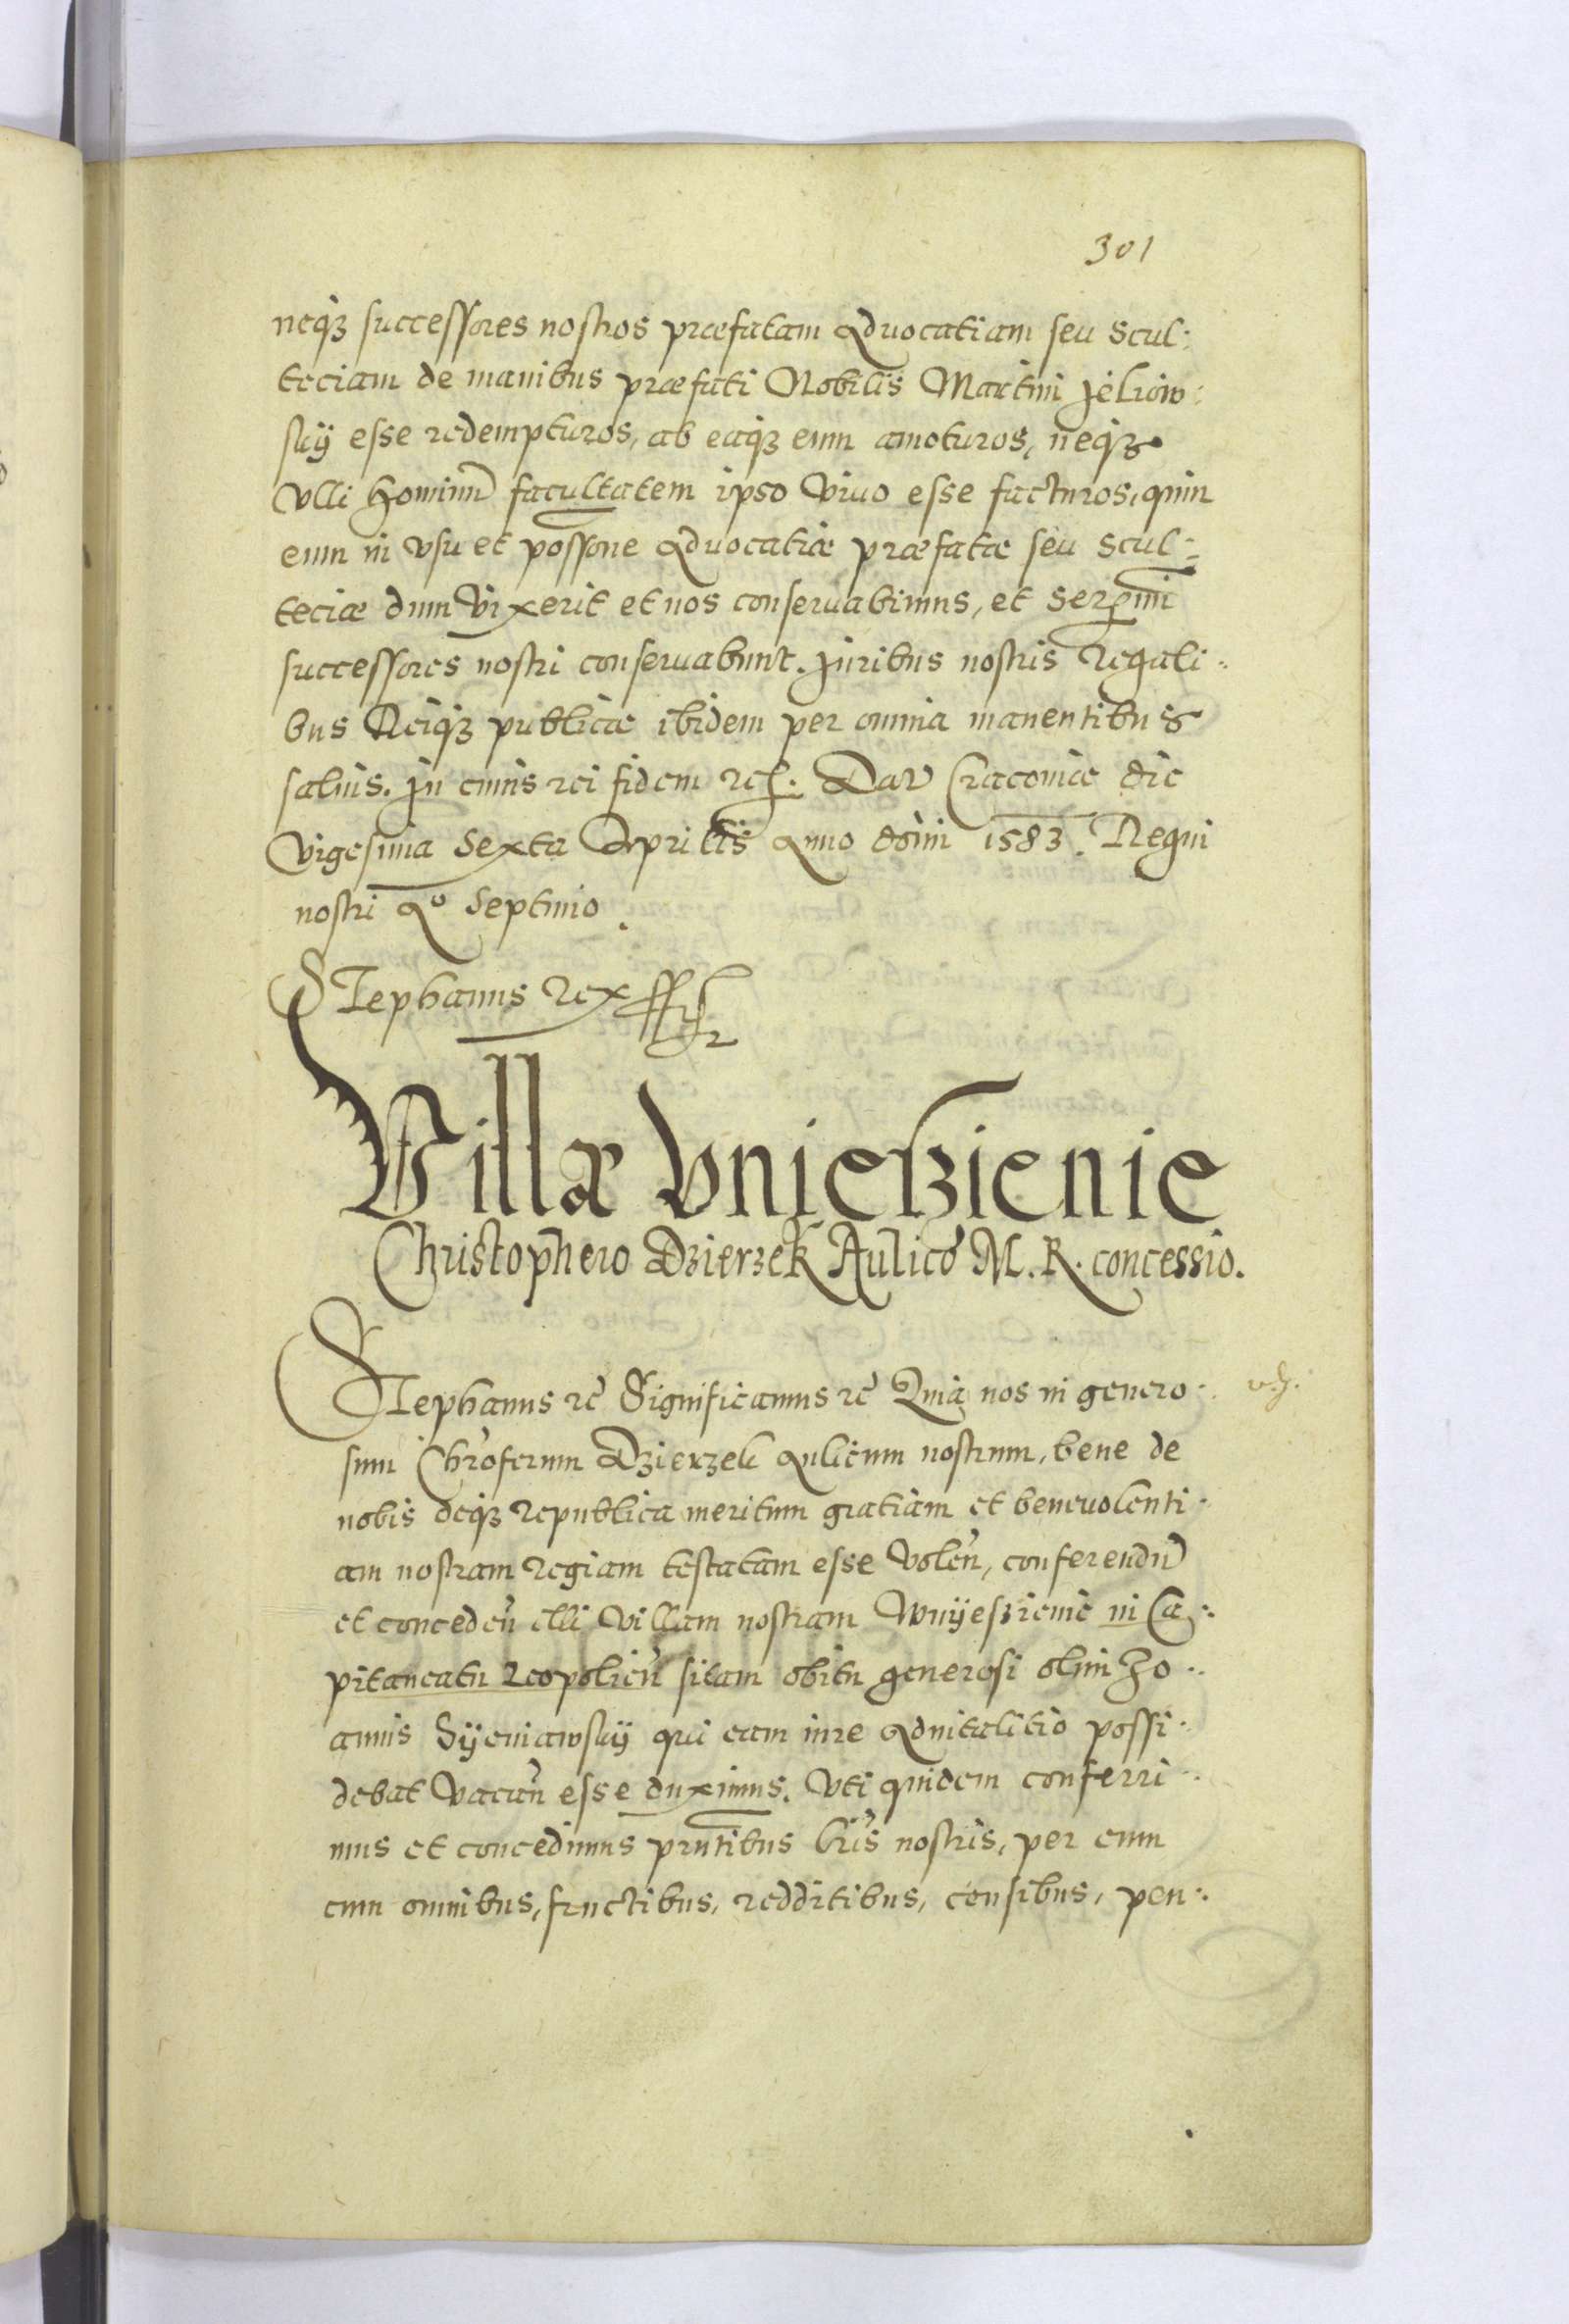 301
neqz successores nostros præfatam Aduocatiam seu Scul:
teciam de manibus præfati Nobilis Martini Jeliow:
skÿ esse redempturos, ab eaqz eum amoturos, neqz
Vlli hominũ facultatem ipso Viuo esse facturos, quin
eum in Vsu et possone Aduocatiæ præfatæ seu Scul:
teciæ dum Vixerit et nos conseruabimus, et Sermi
successores nostri conseruabunt. Juribus nostris Regali:
bus Reiqz publicæ ibidem per omnia manentibus
saluis. In cuius rei fidem Dat Cracouiæ die
Vigesima Sexta Aprilis Anno dñi 1583. Regni
nostri Aº Septimo.
Stephanus Rex
Villæ Vnieszienie
Christophero Dzierzek Aulico M. R. concessio.
Stephanus rc̃ Significamus rc̃ Quia nos in genero:
sum Chr̃oferum Dzierzek Aulicum nostrum, bene de
nobis deqz republica meritum gratiam et beneuolenti:
am nostram regiam testatam esse Voleñ, conferendũ
et concedeñ illi Villam nostram Wnÿeszienie in Ca:
pitaneatu Leopolieñ sitam obitu generosi olim Jo:
annis Sÿeniawskÿ qui eam iure Aduitalitio possi:
debat Vacañ esse duximus. Vti quidem conferri:
mus et concedimus pr̃ntibus lr̃is nostris, per eum
cum omnibus, fructibus, redditibus, censibus, pen: